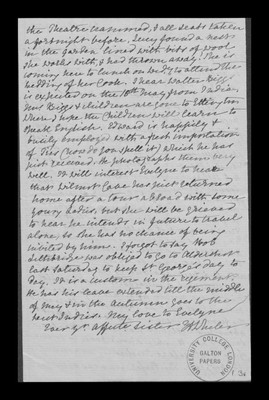 the Theatre crammed, & all seats taken
a fortnight before. Lucy found a nest
in the Garden lined with bits of wool
she works with, & had thrown away. She is
coming here to lunch on Wedy to attend the
wedding of her Cook. I hear Walter Bigg
is expected on the 10th May from India.
Mrs Bigg & children are gone to
where I hope the Children will learn to
speak English. Edward is happily &
busily employed with a fresh importation
of Tiles (how do you spell it) which he has
just received. He photographs them very
well. It will interest Evelyne to hear
that Wilmot Case has just returned
home after a tour abroad with some
young ladies, but she will be grieved
to hear he intends in future to travel
alone, so she has no chance of being
invited by him. I forgot to say Herb
was obliged to go to Aldershot
last Saturday to keep St George's day to
day. It is a custom in the regiment.
He has his leave extended till the middle
of May & in the Autumn goes to the
West Indies. My love to Evelyne
Ever yr affecte Sister
UNIVERSITY COLLEGE LONDON
GALTON
PAPERS